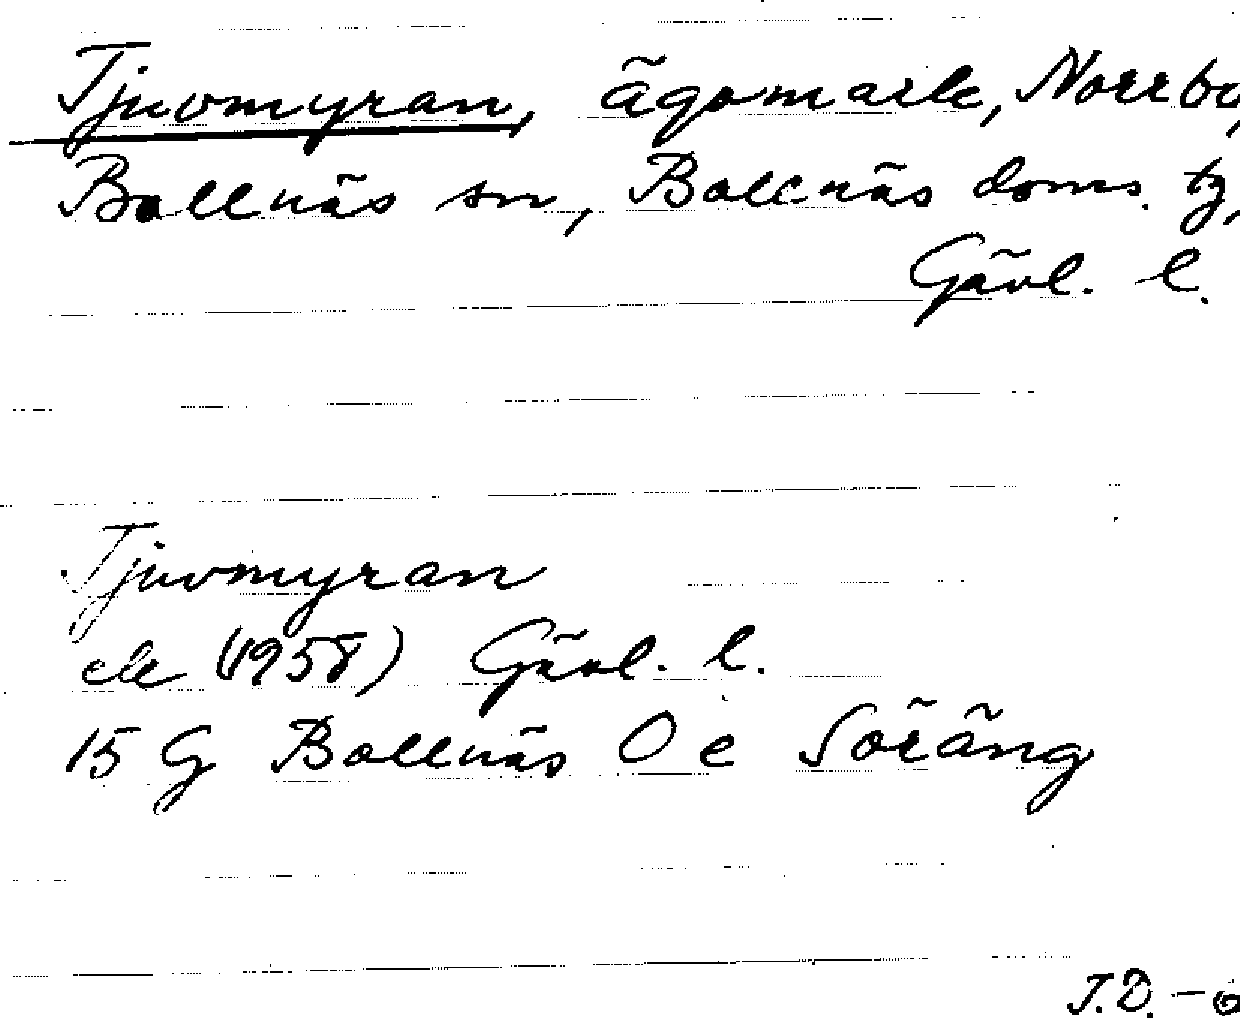 Tjuvmyran, ägomark, Norrbo,
Bollnäs sn, Bollnäs doms. tg,
Gävl. l.
Tjuvmyran
ek (1958) Gävl. l.
15 G Bollnäs O e Söräng
J.D. -6